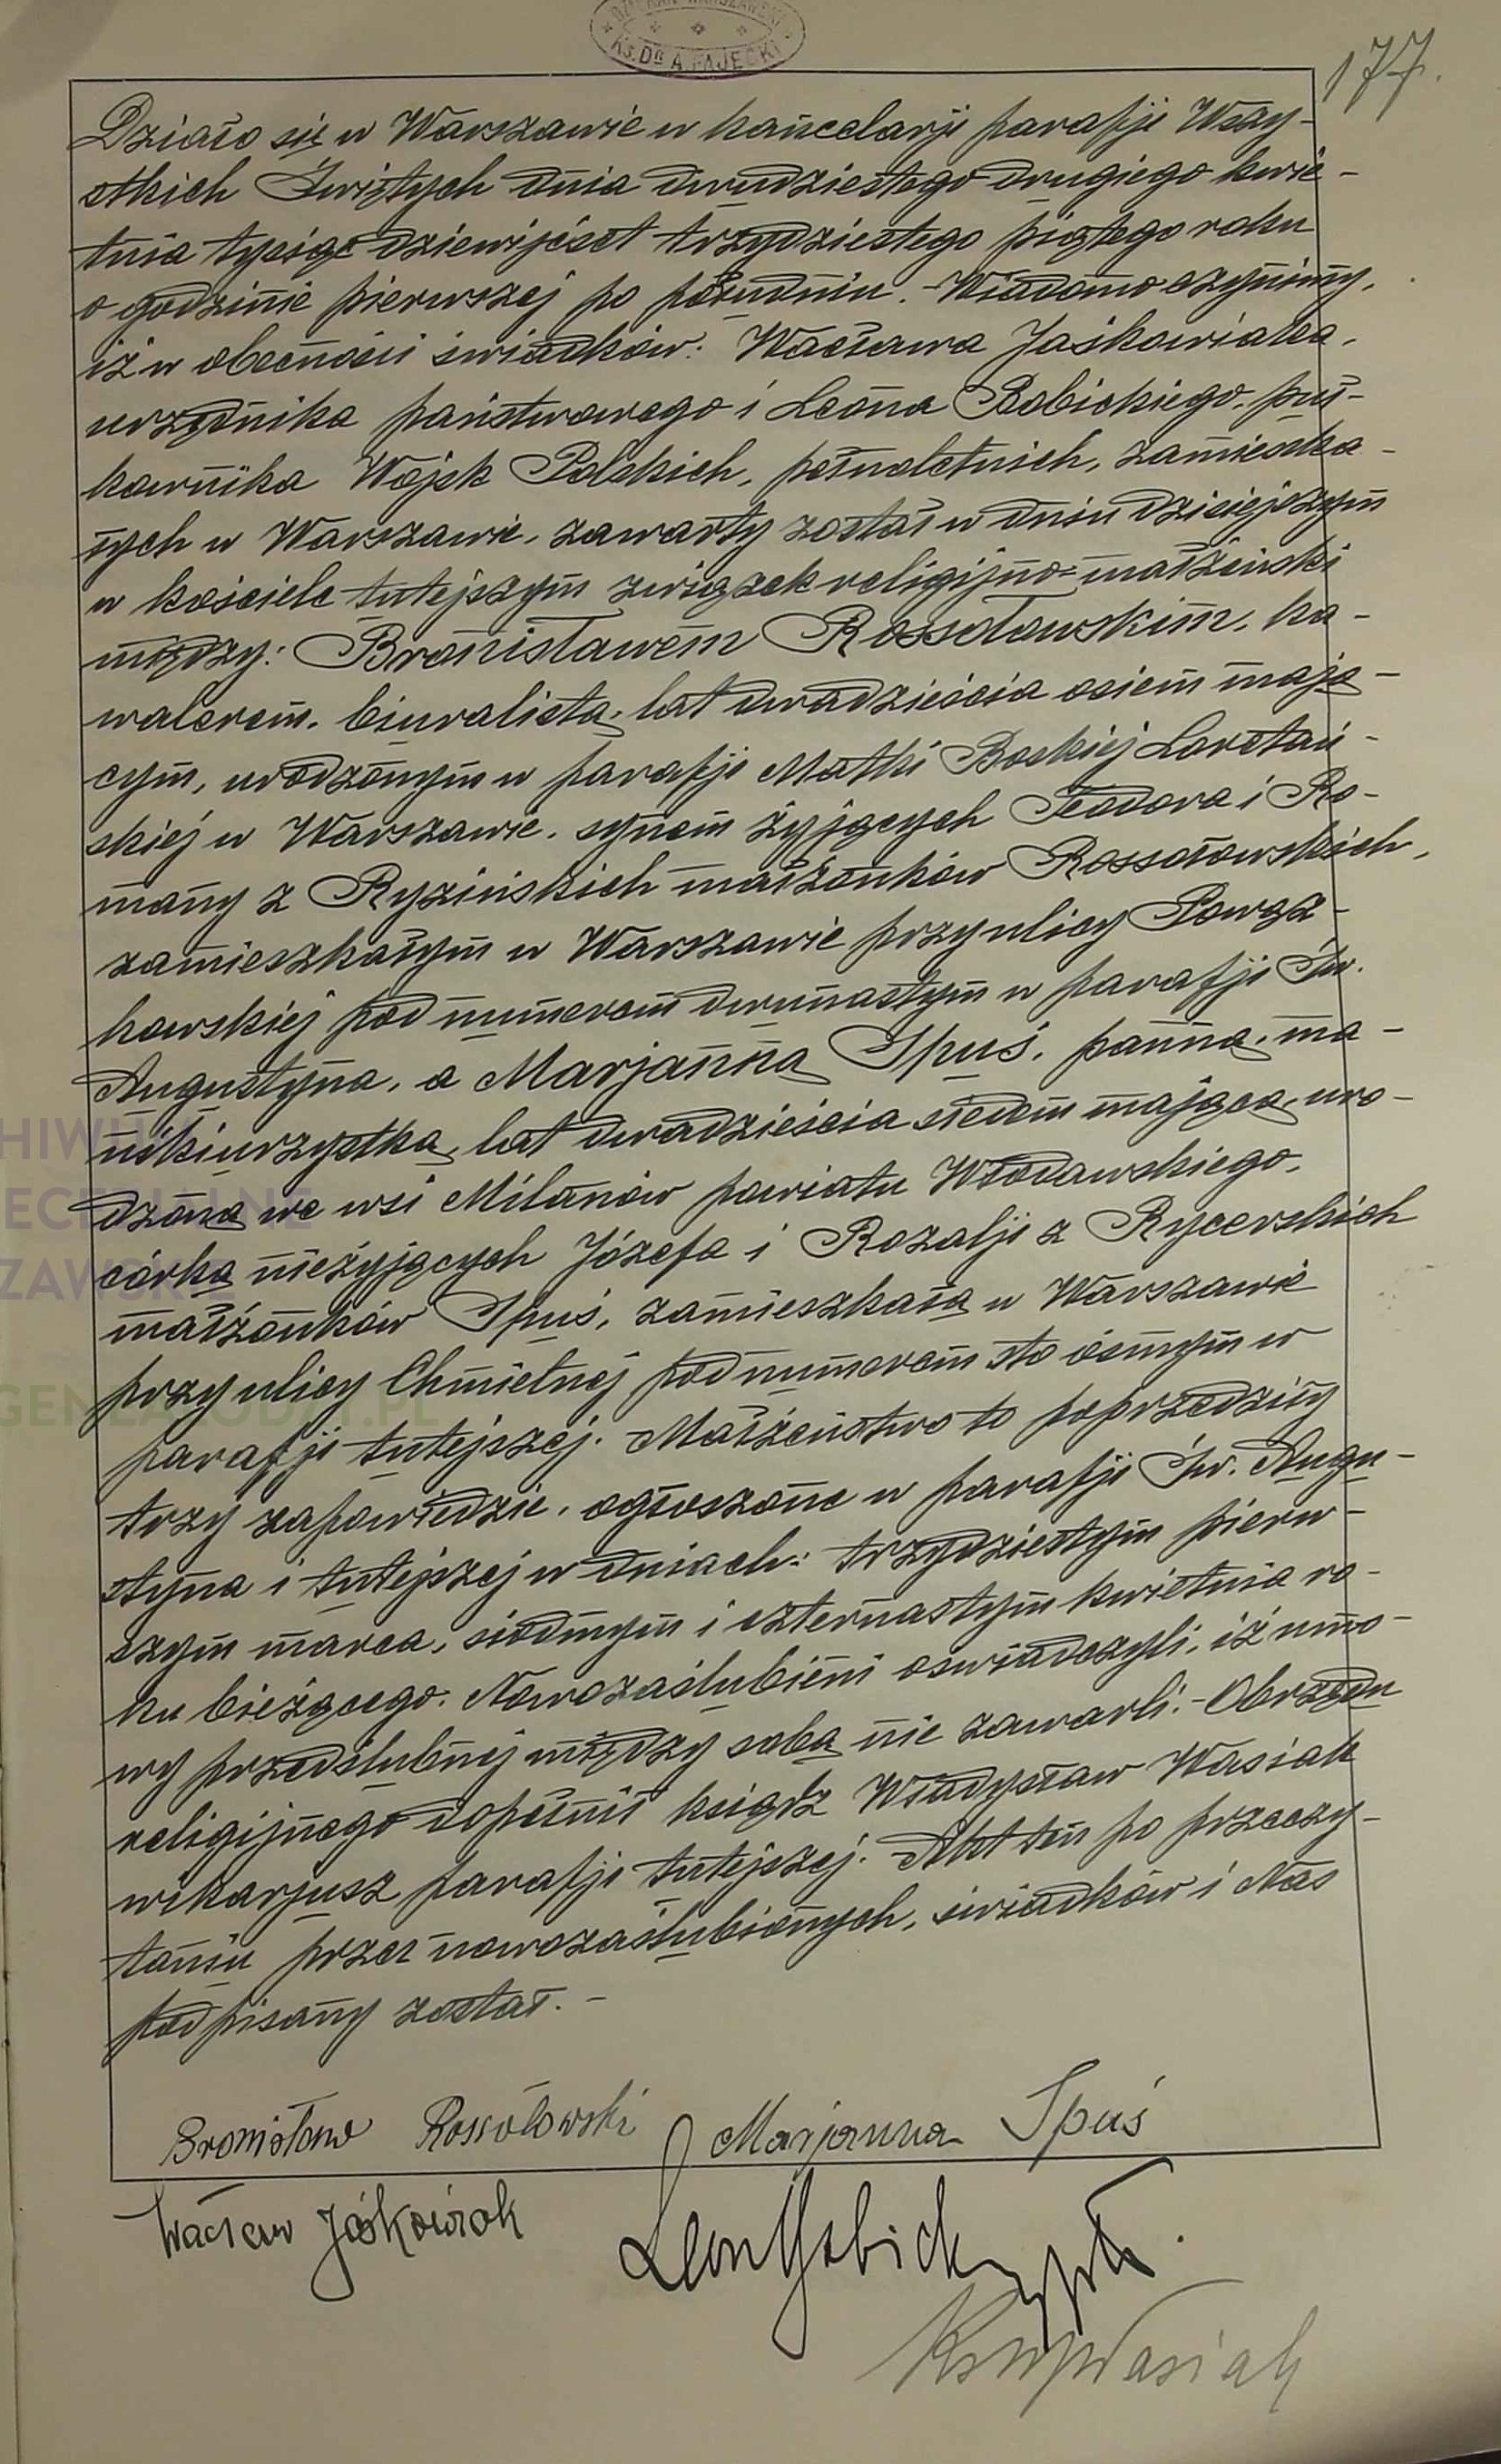 177.
KS. DR A. FAJĘCKI
Działo się w Warszawie w kancelarji parafji Wszy-
stkich Świętych dnia dwudziestego drugiego kwie-
tnia tysiąc dziewięćset trzydziestego piątego roku
o godzinie pierwszej po południu. - Wiadomo czynimy,
iż w obecności świadków: Wacława Jaśkowiaka,
urzędnika państwowego i Leona Babickiego, puł-
kownika Wojsk Polskich, pełnoletnich, zamieszka-
łych w Warszawie, zawarty został w dniu dzisiejszym
w kościele tutejszym związek religijno-małżeński
między: Bronisławem Rossołowskim, ka-
walerem, biuralistą, lat dwadzieścia osiem mają-
cym, urodzonym w parafji Matki Boskiej Loretań-
skiej w Warszawie, synem żyjących Teodora i Ro-
many z Ryzińskich małżonków Rossołowskich,
zamieszkałym w Warszawie przy ulicy Powąz-
kowskiej pod numerem dwunastym w parafji Św.
Augustyna, a Marjanną Spuś, panną, ma-
nikiurzystką, lat dwadzieścia siedem mającą, uro-
dzoną we wsi Milanów powiatu Włodawskiego,
córką nieżyjących Józefa i Rozalji z Rycerskich
małżonków Spuś, zamieszkałą w Warszawie
przy ulicy Chmielnej pod numerem sto ósmym w
parafji tutejszej. Małżeństwo to poprzedziły
trzy zapowiedzie, ogłoszone w parafji Św. Augu-
styna i tutejszej w dniach: trzydziestym pierw-
szym marca, siódmym i czternastym kwietnia ro-
ku bieżącego. Nowozaślubieni oświadczyli, iż umo-
wy przedślubnej między sobą nie zawarli. - Obrzędu
religijnego dopełnił ksiądz Władysław Wasiak
wikarjusz parafji tutejszej. Akt ten po przeczy-
taniu przez nowozaślubionych, świadków i Nas
podpisany został. -
Bronisław Rossołowski Marjanna Spuś
Wacław Jaśkowiak Leon Babicki płk.
Ks. W. Wasiak